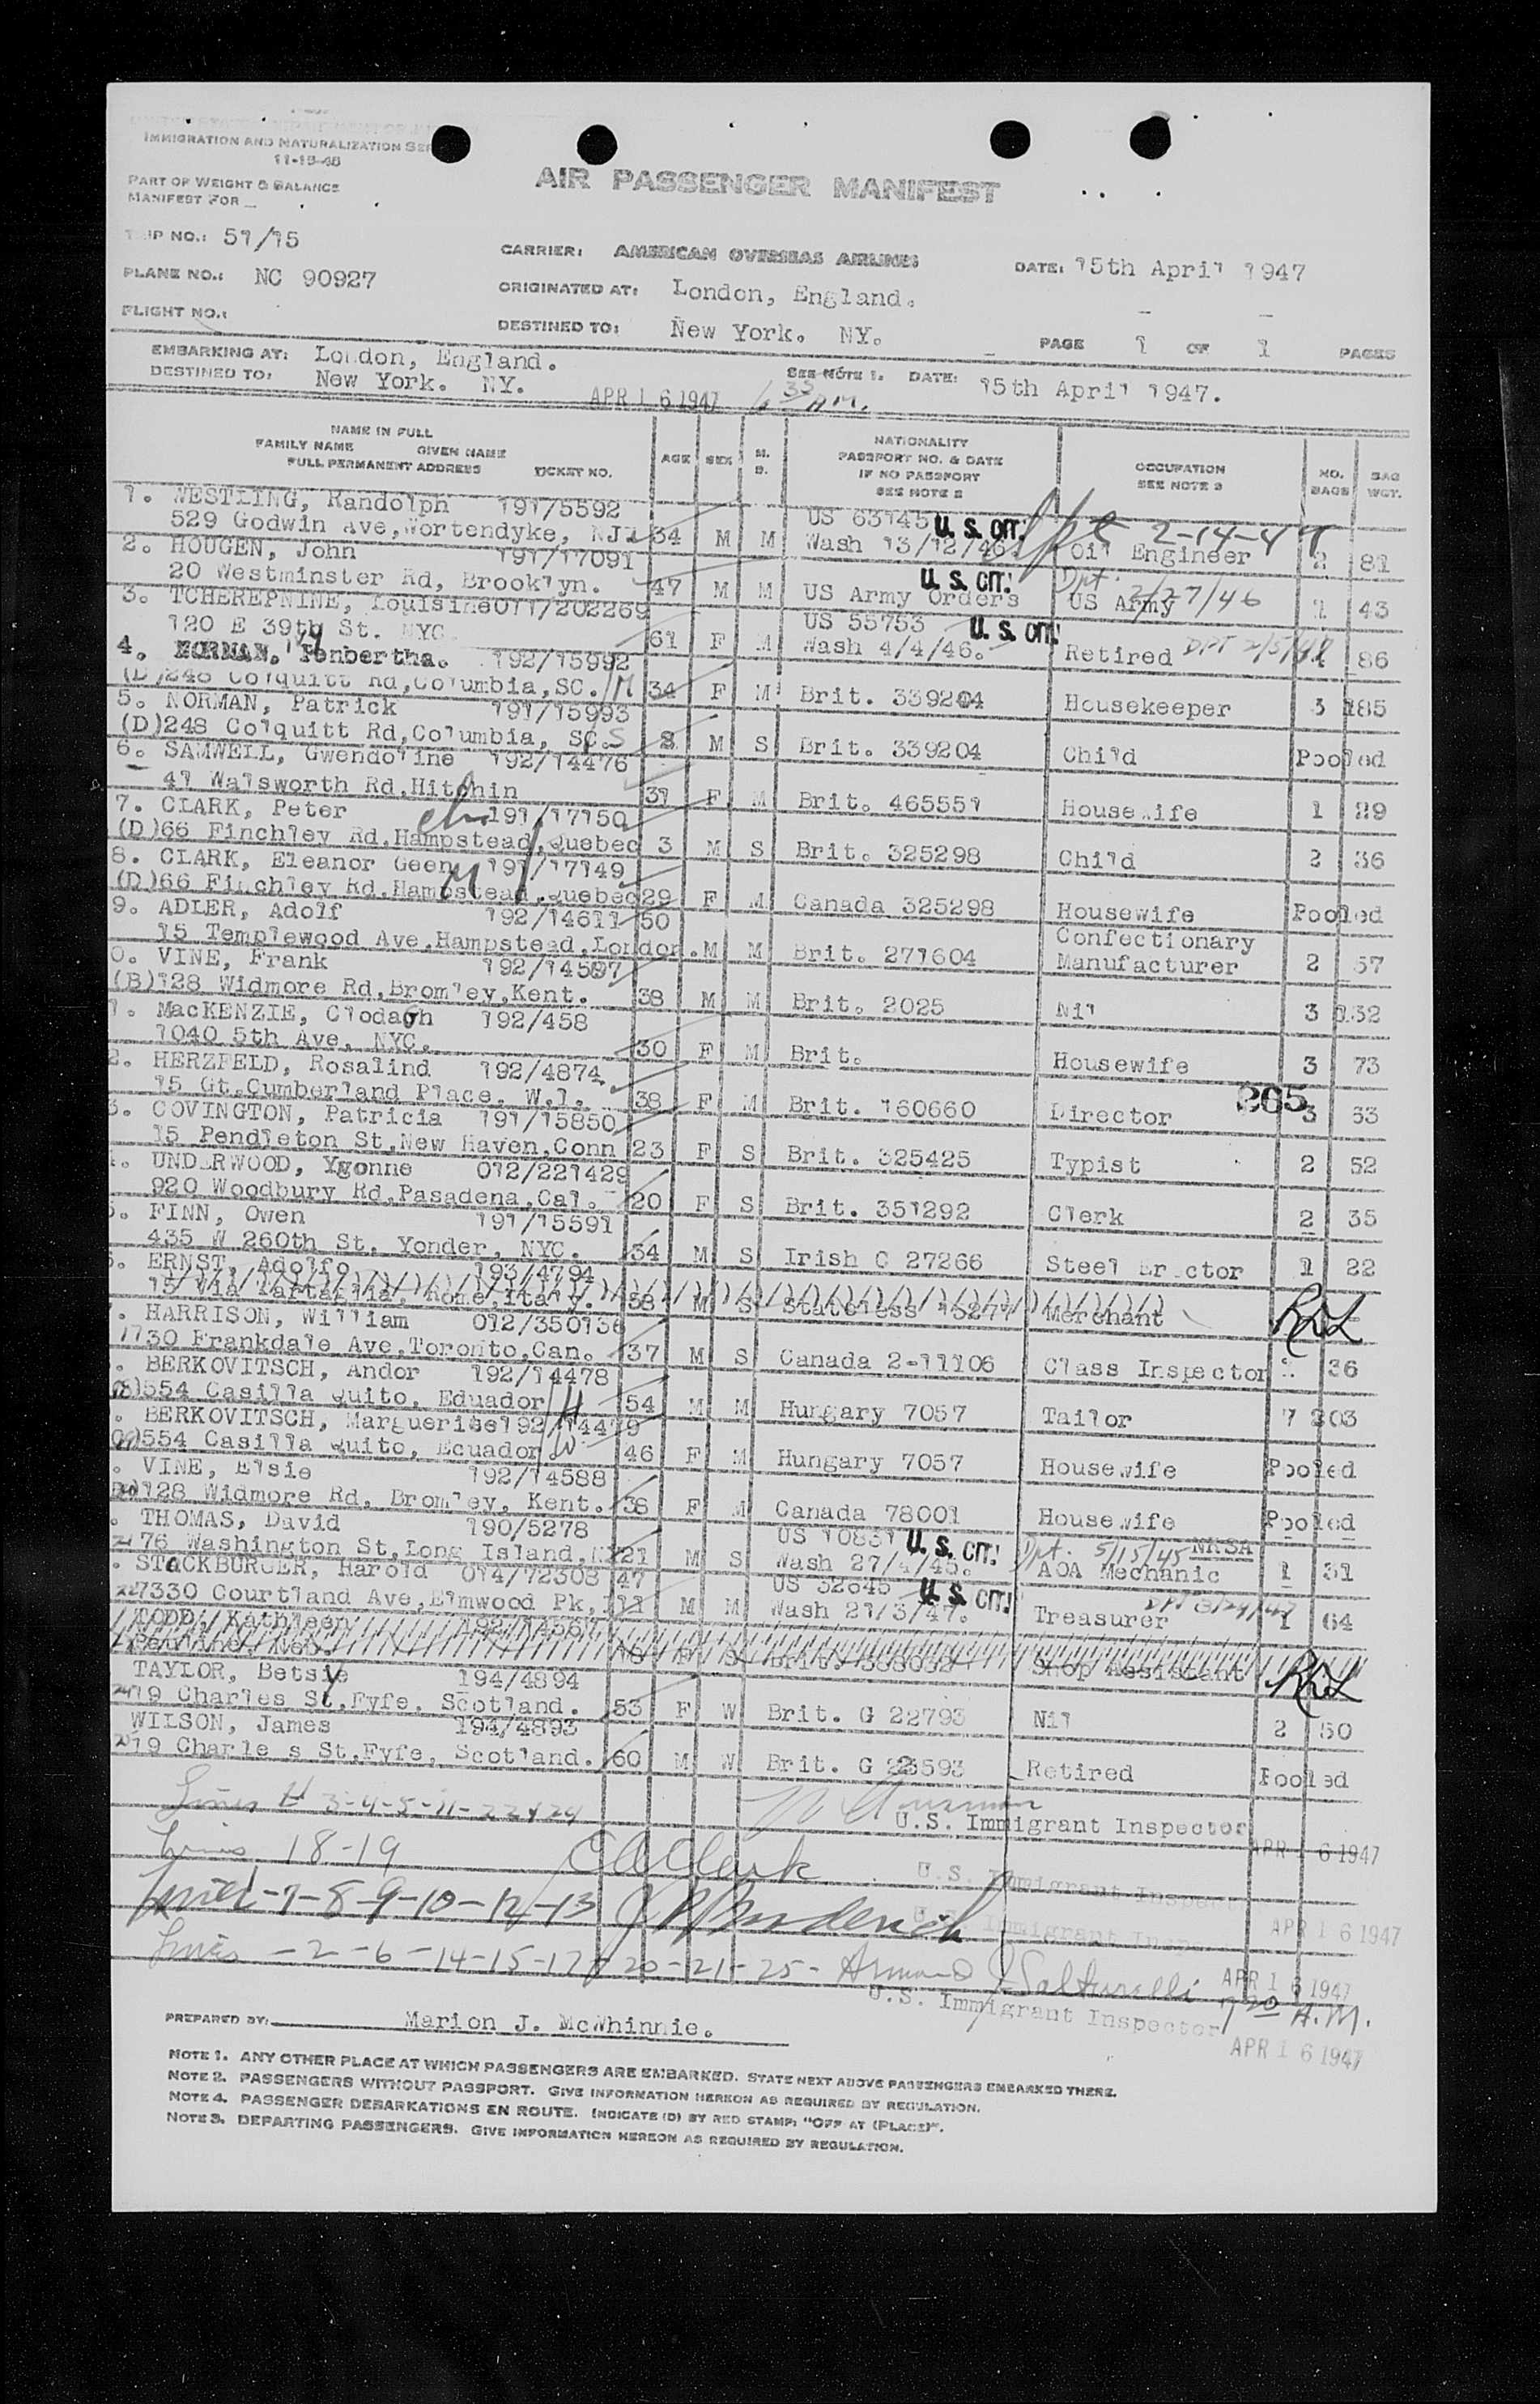 IMMIGRATION AND NATURALIZATION SER
11-15-46
PART OF WEIGHT & BALANCE
MANIFEST FOR
AIR PASSENGER MANIFEST
IP NO.: 51/15
CARRIER: AMERICAN OVERSEAS AIRLINES
DATE: 15th April 1947
PLANE NO.: NC 90927
ORIGINATED AT: London, England.
FLIGHT NO.:
DESTINED TO: New York. NY.
PAGE 1 OF 1 PAGES
EMBARKING AT: London, England.
DESTINED TO: New York. NY.
SEE NOTE 1. DATE: 15th April 1947.
APR 16 1947 6 35 AM.
NAME IN FULL
FAMILY NAME GIVEN NAME
FULL PERMANENT ADDRESS TICKET NO.
AGE SEX M. S.
NATIONALITY
PASSPORT NO. & DATE
IF NO PASSPORT
SEE NOTE 2
OCCUPATION
SEE NOTE 3
NO. BAGS
BAG WGT.
1. WESTLING, Randolph 191/5592 US 63145 U. S. CIT. 2-14-47
529 Godwin Ave,Wortendyke, NJ 34 M M Wash 13/12/46. Oil Engineer 2 81
2. HOUGEN, John 191/17091 U. S. CIT. Dpt. 2/27/46
20 Westminster Rd, Brooklyn. 47 M M US Army Orders US Army 1 43
3. TCHEREPNINE, Louisine 011/202269 US 55753 U. S. CIT.
120 E 39th St. NYC. 61 F M Wash 4/4/46. Retired DPT 86
4. NORMAN, Penbertha. 192/15992
(D)248 Colquitt Rd,Columbia,SC. M 34 F M Brit. 339204 Housekeeper 3 185
5. NORMAN, Patrick 191/15993
(D)248 Colquitt Rd,Columbia, SC. S 8 M S Brit. 339204 Child Pooled
6. SAMWELL, Gwendoline 192/14476
41 Walsworth Rd,Hitchin 31 F M Brit. 465551 Housewife 1 29
7. CLARK, Peter ch 191/17150
(D)66 Finchley Rd,Hampstead,Quebec 3 M S Brit. 325298 Child 2 36
8. CLARK, Eleanor Geen M 191/17149
(D)66 Finchley Rd,Hampstead,Quebec 29 F M Canada 325298 Housewife Pooled
9. ADLER, Adolf 192/14611 50 Confectionary
15 Templewood Ave,Hampstead,London. M M Brit. 271604 Manufacturer 2 57
0. VINE, Frank 192/14587
(B)128 Widmore Rd,Bromley,Kent. 38 M M Brit. 2025 Nil 3 132
1. MacKENZIE, Clodagh 192/458
1040 5th Ave, NYC. 30 F M Brit. Housewife 3 73
2. HERZFELD, Rosalind 192/4874
15 Gt.Cumberland Place, W.1. 38 F M Brit. 160660 Director 265 3 53
3. COVINGTON, Patricia 191/15850
15 Pendleton St,New Haven,Conn 23 F S Brit. 325425 Typist 2 52
4. UNDERWOOD, Yvonne 012/221429
920 Woodbury Rd,Pasadena,Cal. 20 F S Brit. 351292 Clerk 2 35
5. FINN, Owen 191/15591
435 W 260th St, Yonder, NYC. 34 M S Irish C 27266 Steel Erector 1 22
ERNST, Adolfo 193/4794
15 Via Tartaglia, Rome,Italy. 58 M S Stateless Merchant
HARRISON, William 012/350136
1730 Frankdale Ave,Toronto,Can. 37 M S Canada 2-11106 Class Inspector 36
BERKOVITSCH, Andor 192/14478
554 Casilla Quito, Eduador H 54 M M Hungary 7057 Tailor 7 203
BERKOVITSCH, Marguerite 192/14479
554 Casilla Quito, Ecuador W 46 F M Hungary 7057 Housewife Pooled
VINE, Elsie 192/14588
128 Widmore Rd, Bromley, Kent. 38 F M Canada 78001 Housewife Pooled
THOMAS, David 190/5278 US 10831 U. S. CIT. Dpt. 5/15/45
76 Washington St,Long Island,NY 21 M S Wash 27/4/45. AOA Mechanic 1 31
STACKBURGER, Harold 014/72308 47 US 32645 U. S. CIT.
7330 Courtland Ave,Elmwood Pk,Ill M M Wash 21/3/47. Treasurer 1 64
TODD, Kathleen
Shop Assistant
TAYLOR, Betsy 194/4894
19 Charles St,Fyfe, Scotland. 53 F W Brit. G 22793 Nil 2 50
WILSON, James 194/4893
19 Charle s St,Fyfe, Scotland. 60 M W Brit. G 23593 Retired Pooled
Lines # 3-4-5-11-22 & 24
U.S. Immigrant Inspector
APR 16 1947
Lines 18-19 C A Clark
U.S. Immigrant Inspect
-7-8-9-10-12-13
Immigrant Inspe
APR 16 1947
Lines -2-6-14-15-17- 20-21-25-
APR 16 1947
U.S. Immigrant Inspector 7 20 A.M.
APR 16 1947
PREPARED BY: Marion J. McWhinnie.
NOTE 1. ANY OTHER PLACE AT WHICH PASSENGERS ARE EMBARKED. STATE NEXT ABOVE PASSENGERS EMBARKED THERE.
NOTE 2. PASSENGERS WITHOUT PASSPORT. GIVE INFORMATION HEREON AS REQUIRED BY REGULATION.
NOTE 4. PASSENGER DEBARKATIONS EN ROUTE. INDICATE (D) BY RED STAMP: "OFF AT (PLACE)".
NOTE 3. DEPARTING PASSENGERS. GIVE INFORMATION HEREON AS REQUIRED BY REGULATION.